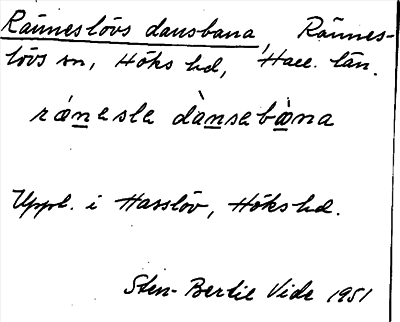 Ränneslövs dansbana, Rännes-
lövs sn, Höks hd, Hall. län.
ránesla dànsebàna
Uppt. i Hasslöv, Höks hd.
Sten-Bertil Vide 1951